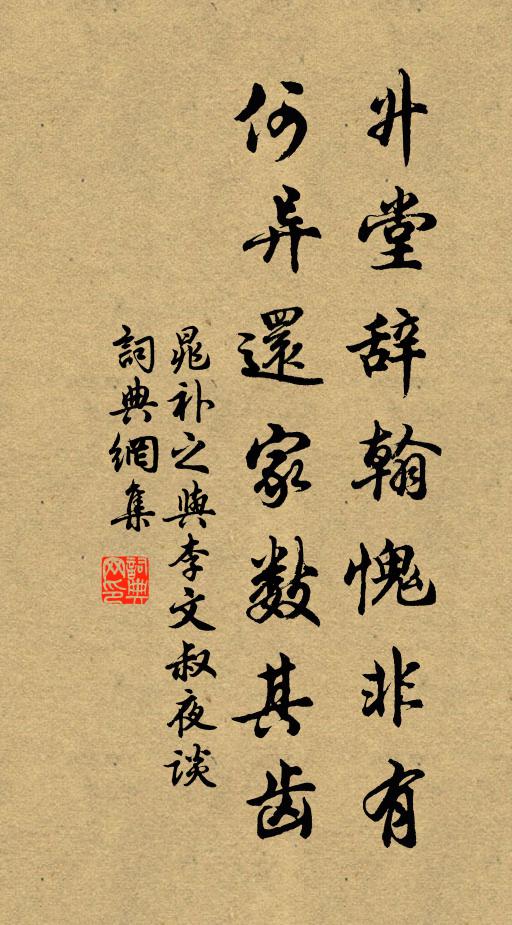 升堂辞翰愧非有
何异還家数其齿
晁补之與李文叔夜谈
詞典網集
詞典网印